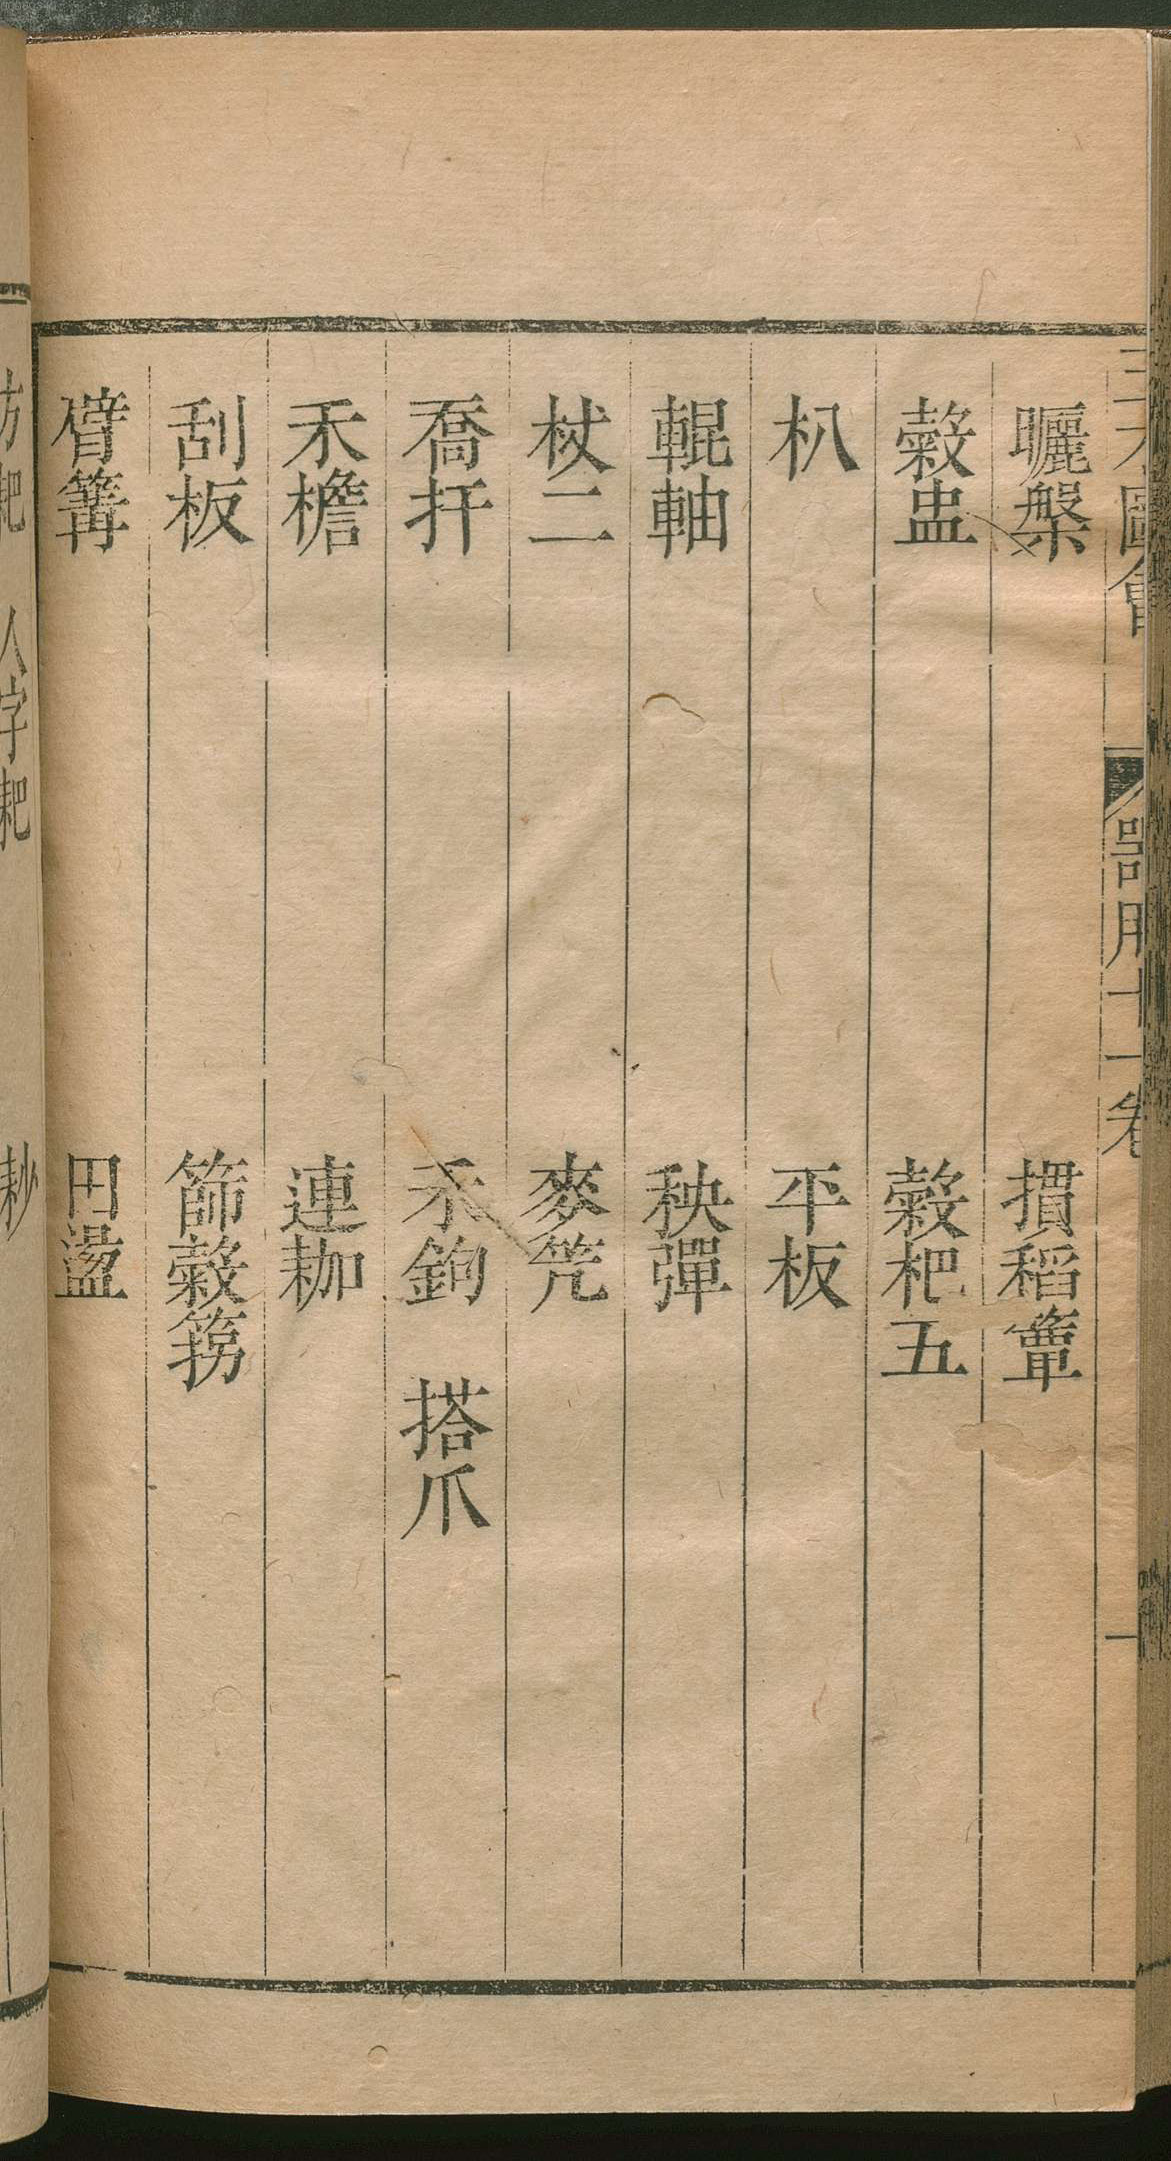 三才圖會 器用十一卷 一
曬槃 摜稻簟
穀盅 穀杷五
朳 平板
輥軸 秧彈
杖二 麥笐
喬扞 禾鉤 搭爪
禾檐 連耞
刮板 篩穀
臂篝 田盪
方耙 人字耙 耖